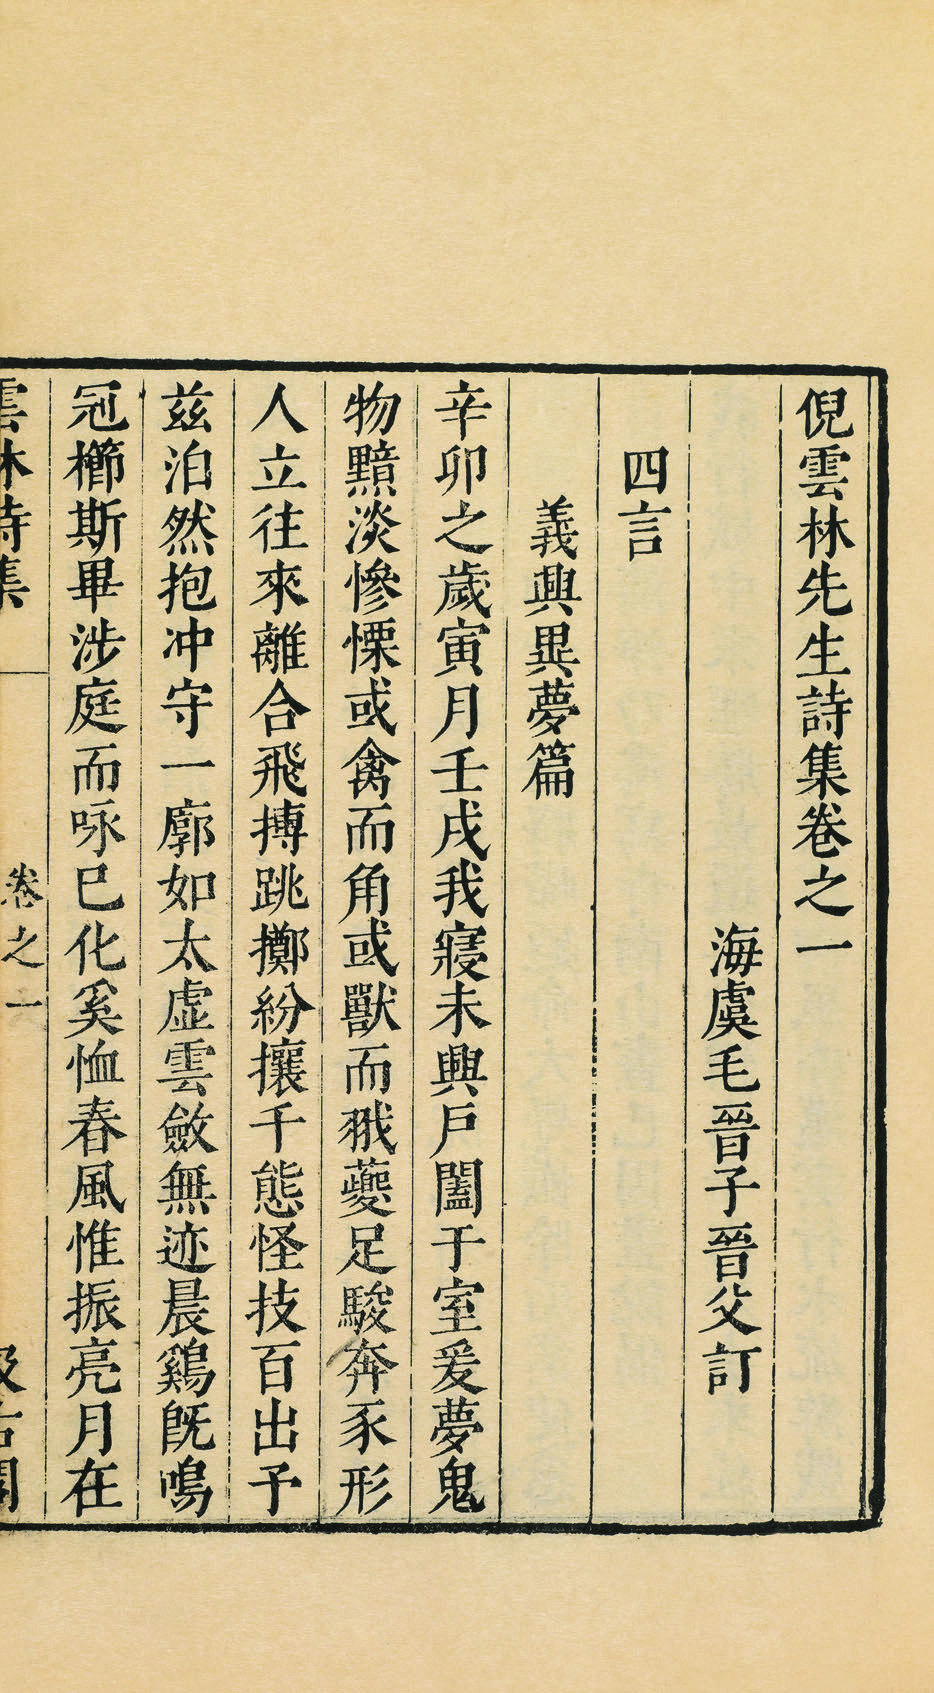 倪雲林先生詩集卷之一
海虞毛晉子晉父訂
四言
義興異夢篇
辛卯之歲寅月壬戌我寢未興戶闔于室爰夢鬼
物黯淡慘慄或禽而角或獸而翐夔足駿奔豕形
人立往來離合飛搏跳擲紛攘千態怪技百出予
茲泊然抱冲守一廓如太虛雲斂無迹晨鷄旣鳴
冠櫛斯畢涉庭而咏巳化奚恤春風惟振亮月在
雲林詩集 卷之一 汲古閣